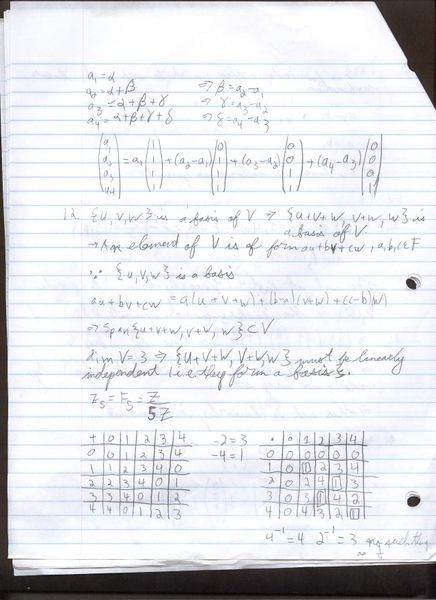 a₁ = α
a₂ = α + β ⇒ β = a₂ - a₁
a₃ = α + β + γ ⇒ γ = a₃ - a₂
a₄ = α + β + γ + δ ⇒ δ = a₄ - a₃
(a₁ a₂ a₃ a₄) = a₁ (1 1 1 1) + (a₂ - a₁) (0 1 1 1) + (a₃ - a₂) (0 0 1 1) + (a₄ - a₃) (0 0 0 1)
12. {u, v, w} is a basis of V ⇒ {u+v+w, v+w, w} is
a basis of V
→ An element of V is of form au + bv + cw, a, b, c ∈ F
∵ {u, v, w} is a basis
au + bv + cw = a(u + v + w) + (b-a)(v+w) + (c-b)(w)
⇒ Span{u+v+w, v+w, w} ⊂ V
dim V = 3 ⇒ {u+v+w, v+w, w} must be linearly
independent i.e. they form a basis.
Z₅ = F₅ = Z/5Z
+ 0 1 2 3 4
0 0 1 2 3 4
1 1 2 3 4 0
2 2 3 4 0 1
3 3 4 0 1 2
4 4 0 1 2 3
-2 = 3
-4 = 1
· 0 1 2 3 4
0 0 0 0 0 0
1 0 1 2 3 4
2 0 2 4 1 3
3 0 3 1 4 2
4 0 4 3 2 1
4⁻¹ = 4 2⁻¹ = 3 no such thing